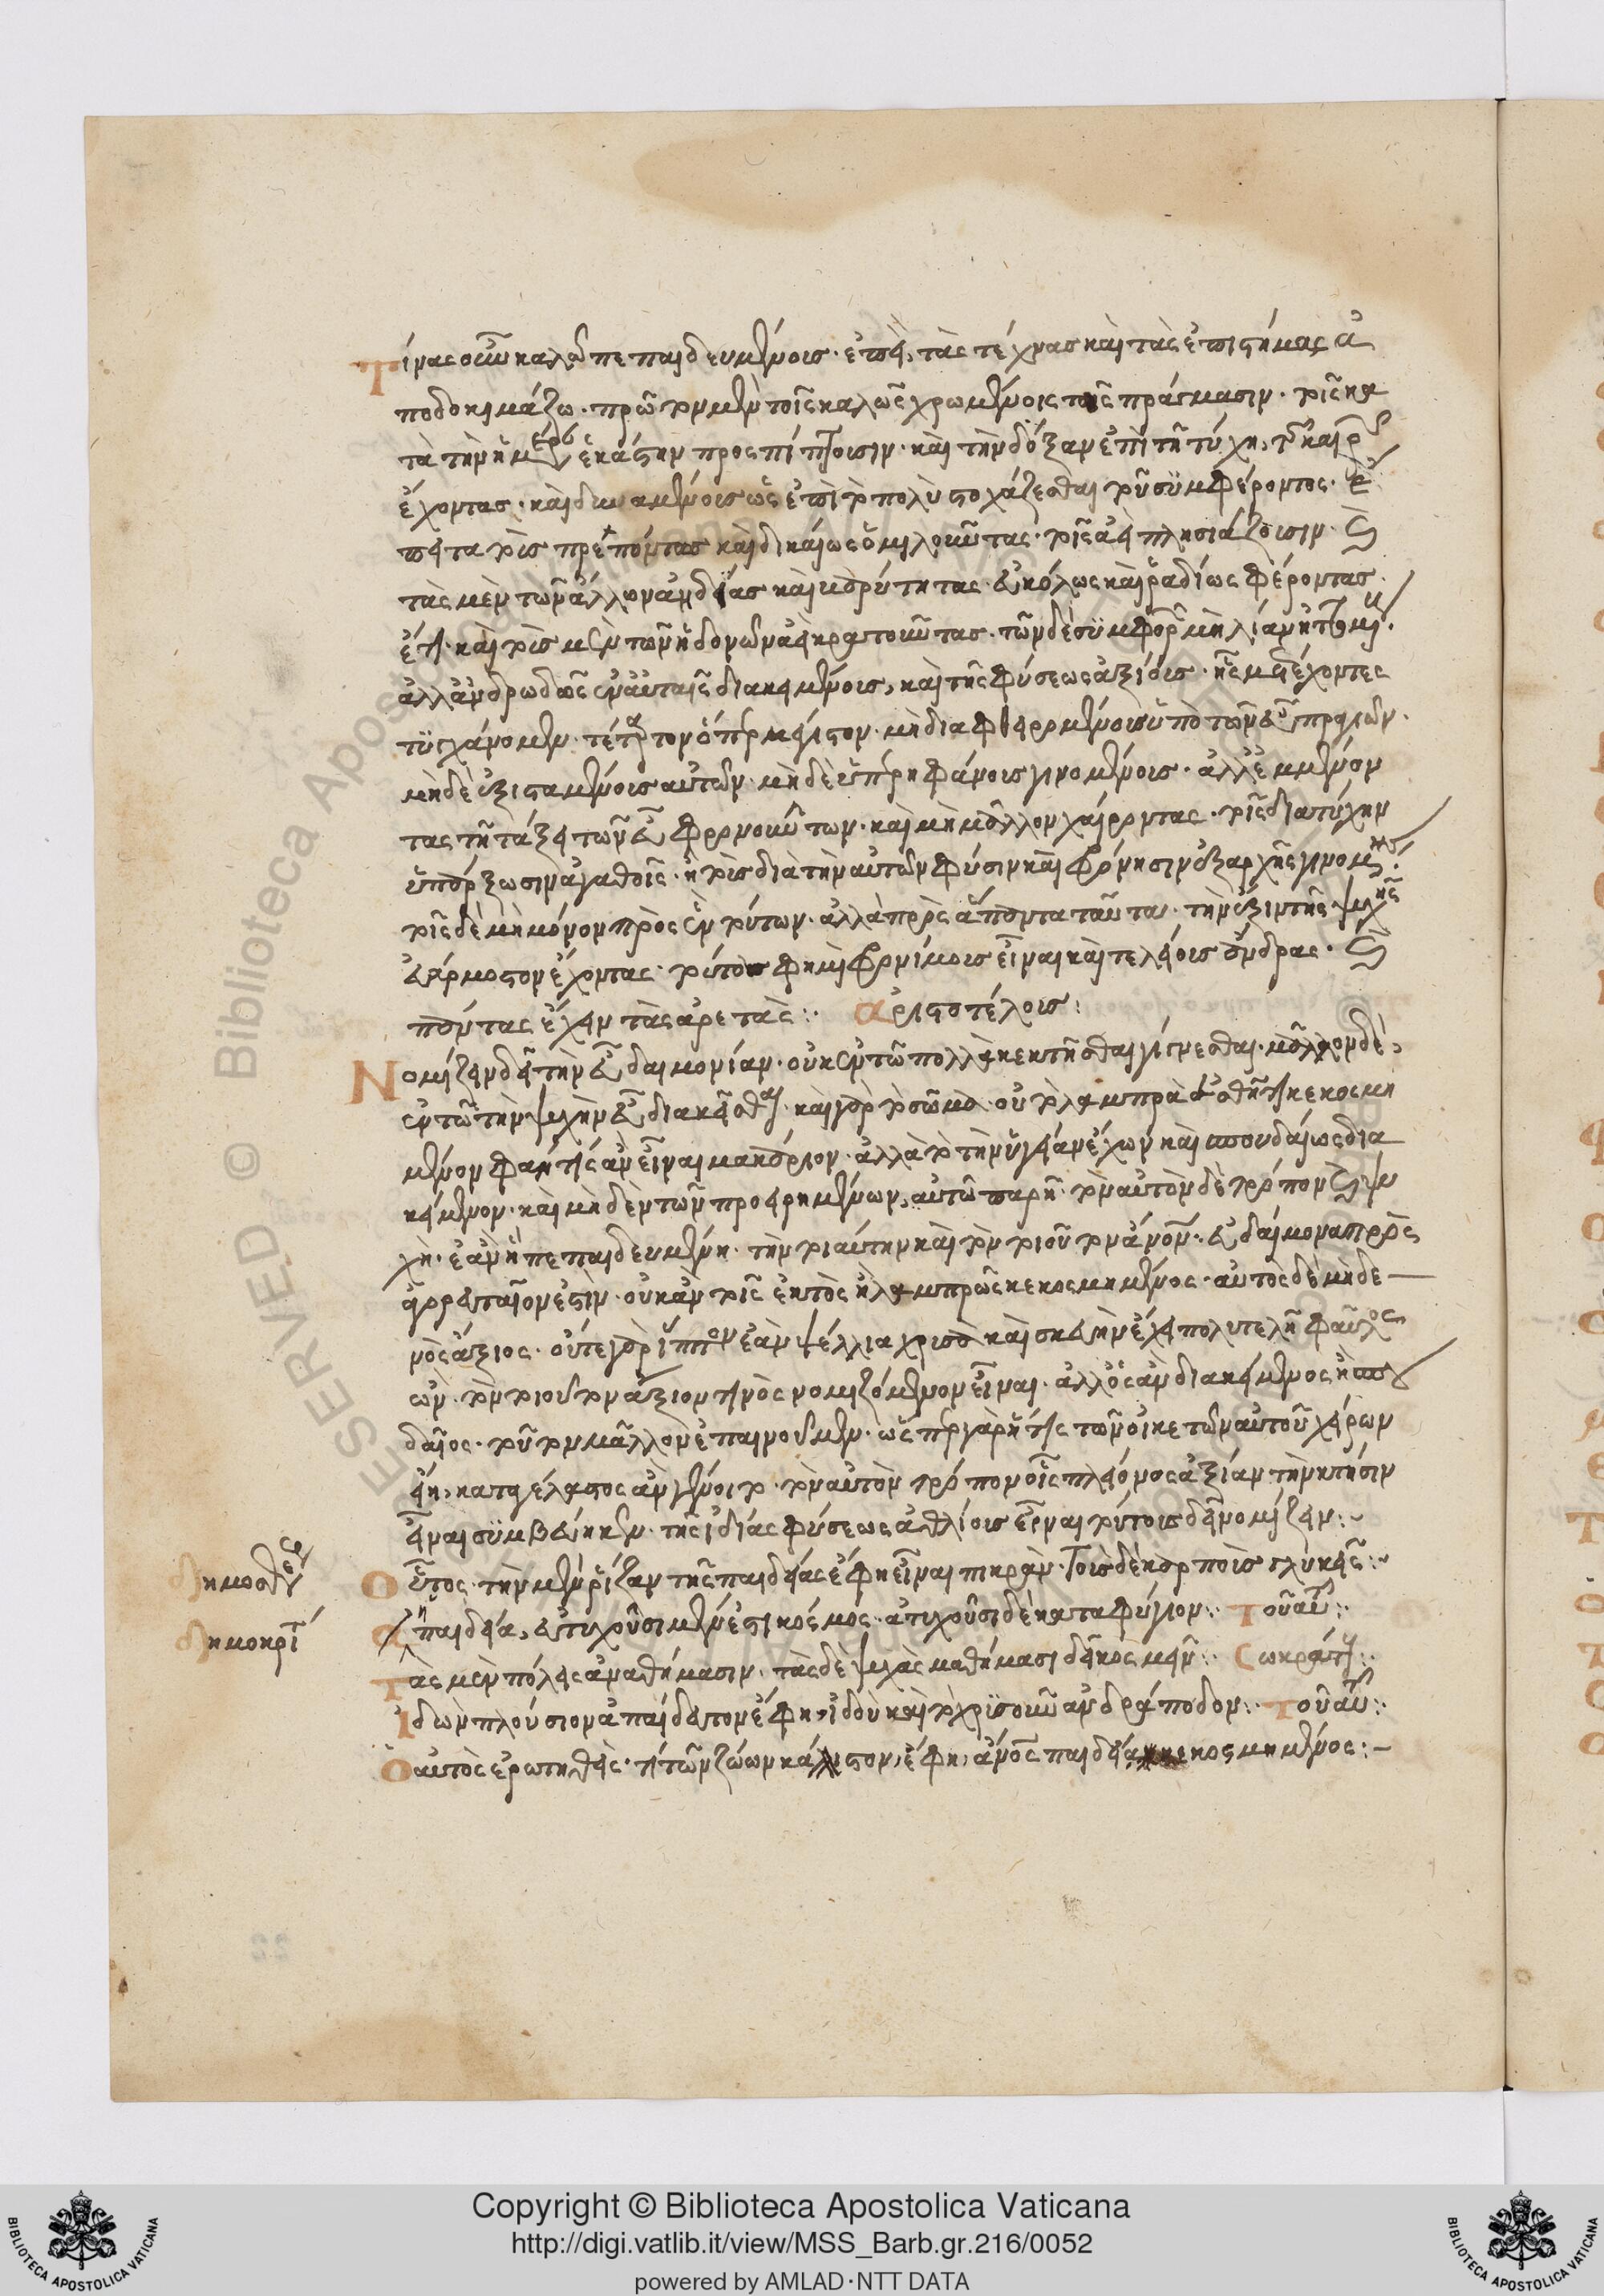 Τίνας οὖν καλῶ πεπαιδευμένους· ἐπεὶ τὰς τέχνας καὶ τὰς ἐπιστήμας ἀ
ποδοκιμάζω· πρῶτον μὲν τοὺς καλῶς χρωμένοις τοῖς πράγμασιν· τοῖς κα
τὰ τὴν ἡμέραν ἑκάστην προσπίπτουσιν· καὶ τὴν δόξαν ἐπὶ τῇ τύχῃ
ἔχοντας· καὶ δυναμένους ὡς ἐπὶ τὸ πολὺ στοχάζεσθαι τοῦ συμφέροντος· ἔ
πειτα τοὺς πρεπόντας καὶ δικαίως ὁμιλοῦντας· τοῖς ἀεὶ πλησιάζουσιν· καὶ
τὰς μὲν τῶν ἄλλων ἀηδείας καὶ βαρύτητας· εὐκόλως καὶ ῥαδίως φέροντας·
ἔτι· καὶ τοὺς μὲν τῶν ἡδονῶν ἀεὶ κρατοῦντας· τῶν δὲ συμφορῶν μὴ λίαν ἡττωμέν·
ἀλλ' ἀνδρωδῶς ἐν αὐταῖς διακειμένους, καὶ τῆς φύσεως ἀξίους· ἧς μετέχοντες
τυγχάνομεν· τέταρτον ὅπερ μέγιστον· μὴ διαφθειρομένους ὑπὸ τῶν εὐπραγιῶν·
μηδὲ ἐξισταμένους αὐτῶν· μηδὲ ὑπερηφάνους γινομένους· ἀλλ' ἐμμένον
τας τῇ τάξει τῶν εὖ φρονούντων· καὶ μὴ μᾶλλον χαίροντας· τοῖς διὰ τύχην
ὑπάρξωσιν ἀγαθοῖς· ἢ τοῖς διὰ τὴν αὐτῶν φύσιν καὶ φρόνησιν ἐξαρχῆς γινομένοις·
τοὺς δὲ μὴ μόνον πρὸς ἓν τούτων· ἀλλὰ πρὸς ἅπαντα ταῦτα· τὴν ἕξιν τῆς ψυχῆς
εὐάρμοστον ἔχοντας· τούτους φημὶ φρονίμους εἶναι καὶ τελείους ἄνδρας· καὶ
πάντας ἔχειν τὰς ἀρετάς:· ἀριστοτέλους:
Νομίζειν δεῖ τὴν εὐδαιμονίαν· οὐκ ἐν τῷ πολλὰ κεκτῆσθαι γίγνεσθαι· μᾶλλον δὲ,
ἐν τῷ τὴν ψυχὴν εὖ διακεῖσθαι· καὶ γὰρ τὸ σῶμα· οὐ τὸ λαμπρᾷ ἐσθῆτι κεκοσμη
μένον φαίη τις ἂν εἶναι μακάριον· ἀλλὰ τὸ τὴν ὑγείαν ἔχων καὶ σπουδαίως δια
κείμενον· καὶ μηδὲν τῶν προειρημένων, αὐτῷ παρῇ· τὸν αὐτὸν δὲ τρόπον καὶ ψυ
χὴ· ἐὰν ᾖ πεπαιδευμένη· τὴν τοιαύτην καὶ τὸν τοιοῦτον ἄνον· εὐδαίμονα προς
αγορευταῖον ἐστὶν· οὐκ ἂν τοῖς ἐκτὸς ᾖ λαμπρῶς κεκοσμημένος· αὐτὸς δὲ μηδε
νὸς ἄξιος· οὔτε γὰρ ἵππον ἐὰν ψέλλια χρυσᾶ καὶ σκευὴν ἔχῃ πολυτελῆ φαῦλος
ὢν· τὸν τοιοῦτον ἄξιον τινὸς νομιζόμενον εἶναι· ἀλλ' ὃς ἂν διακείμενος ᾖ σπου
δαῖος· τοῦτον μᾶλλον ἐπαινοῦμεν· ὥσπερ γὰρ ἤ τις τῶν οἰκετῶν αὐτοῦ χείρων
εἴη, καταγέλαστος ἂν γένοιτο· τὸν αὐτὸν τρόπον οἷς πλείονος ἀξίαν τὴν κτῆσιν
εἶναι συμβέβηκεν· τῆς ἰδίας φύσεως ἀθλίους εἶναι τούτους δεῖ νομίζειν:-
δημοσθένους
Οὗτος· τὴν μὲν ῥίζαν τῆς παιδείας ἔφη εἶναι πικρὰν· τοὺς δὲ καρποὺς γλυκεῖς:-
δημοκρί
ἡ παιδεία, εὐτυχοῦσι μέν ἐστι κόσμος· ἀτυχοῦσι δὲ καταφύγιον:· Τοῦ αὐτ:·
Τὰς μὲν πόλεις ἀναθήμασιν· τὰς δὲ ψυχὰς μαθήμασι δεῖ κοσμεῖν:· Σωκράτ:·
Ἰδὼν πλούσιον ἀπαίδευτον ἔφη, ἰδοὺ καὶ τὸ χρυσοῦν ἀνδράποδον:· Τοῦ αὐτ:·
Ὁ αὐτὸς ἐρωτηθεὶς· τί τῶν ζώων κάλλιστον, ἔφη, ἄνος παιδείᾳ κεκοσμημένος:-
Copyright © Biblioteca Apostolica Vaticana
http://digi.vatlib.it/view/MSS_Barb.gr.216/0052
powered by AMLAD·NTT DATA
BIBLIOTECA APOSTOLICA VATICANA
BIBLIOTECA APOSTOLICA VATICANA